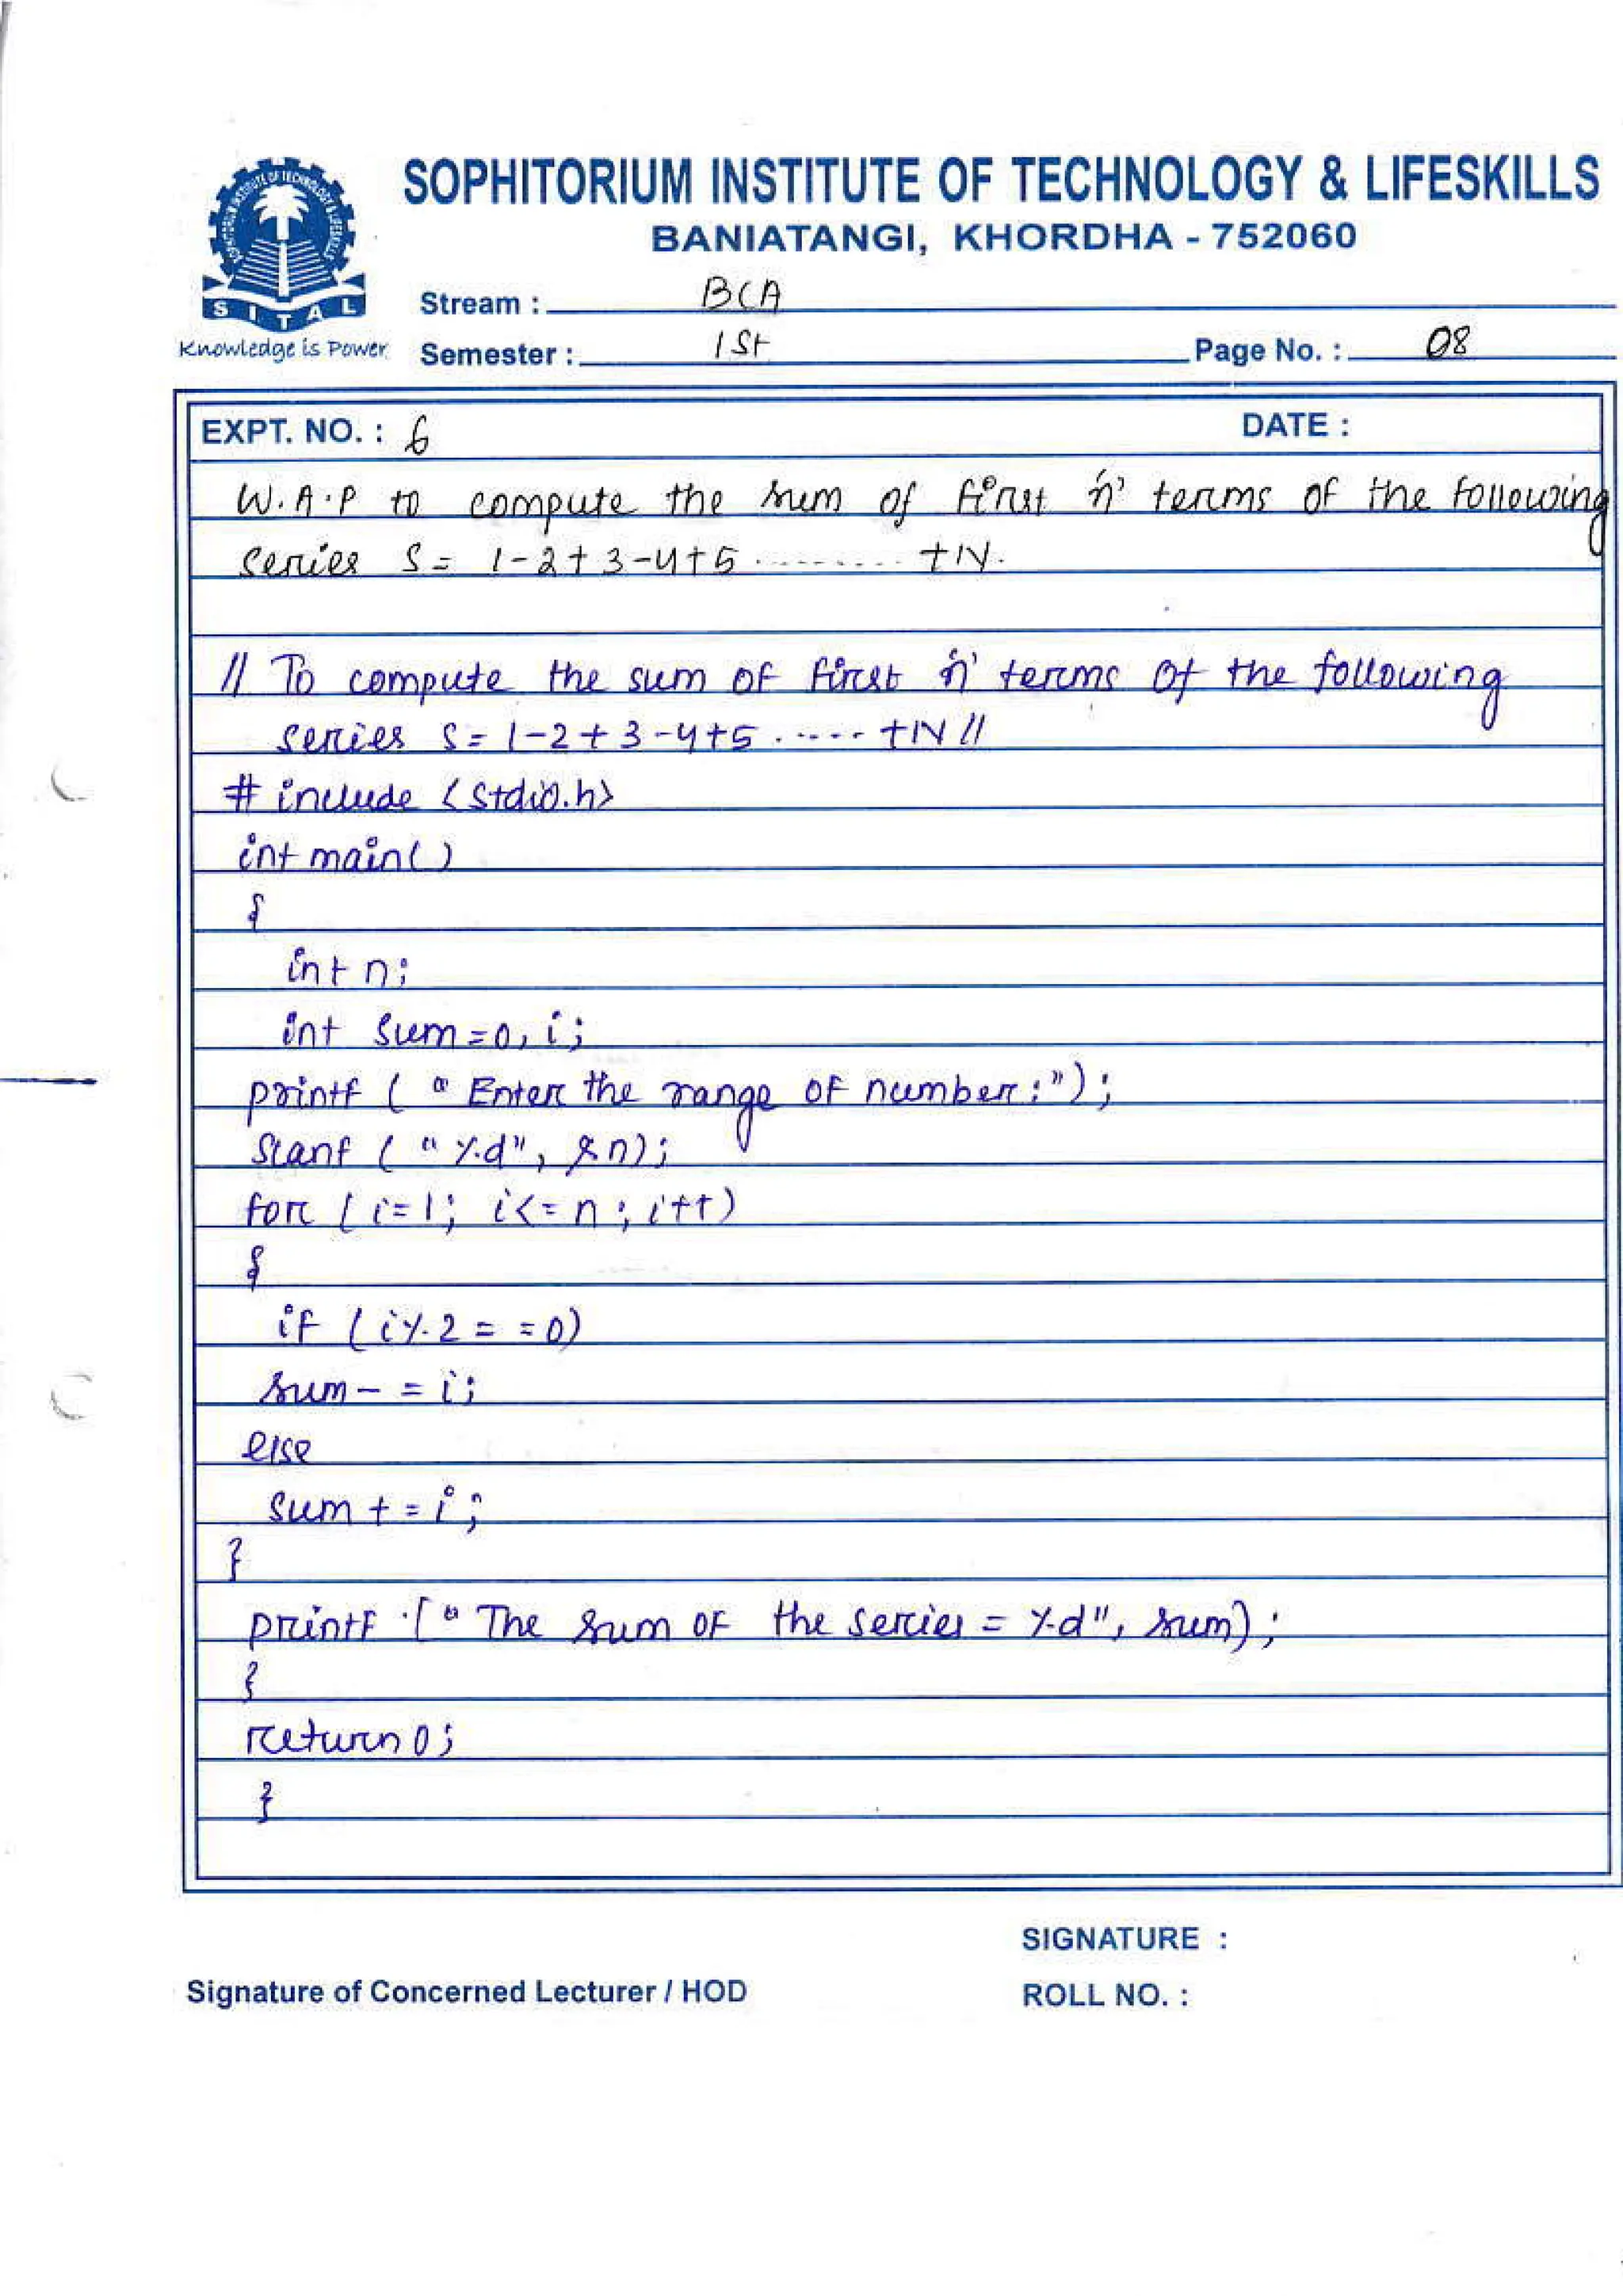 SOPHITORIUM INSTITUTE OF TECHNOLOGY & LIFESKILLS
BANIATANGI, KHORDHA - 752060
SITAL
Knowledge is Power
Stream : BCA
Semester : 1st Page No. : 08
EXPT. NO. : 6 DATE :
W.A.P to compute the sum of first 'n' terms of the following
series S = 1-2+3-4+5 .......... +N.
// To compute the sum of first 'n' terms of the following
series S = 1-2+3-4+5 ...... +N //
# include <stdio.h>
int main()
{
int n;
int sum=0, i;
printf ( " Enter the range of number : ");
Scanf ( " %d", &n);
for ( i=1; i<=n ; i++)
{
if ( i%2 = =0)
sum- = i;
else
sum + = i ;
}
printf ( " The sum of the series = %d", sum);
}
return 0;
}
SIGNATURE :
Signature of Concerned Lecturer / HOD
ROLL NO. :